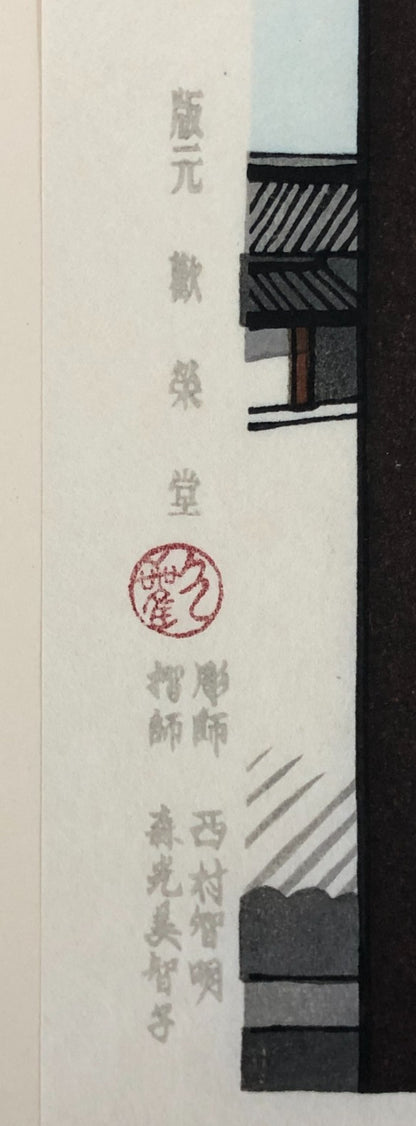 版元 歡榮堂
彫師 西村智明
摺師 森光美智子